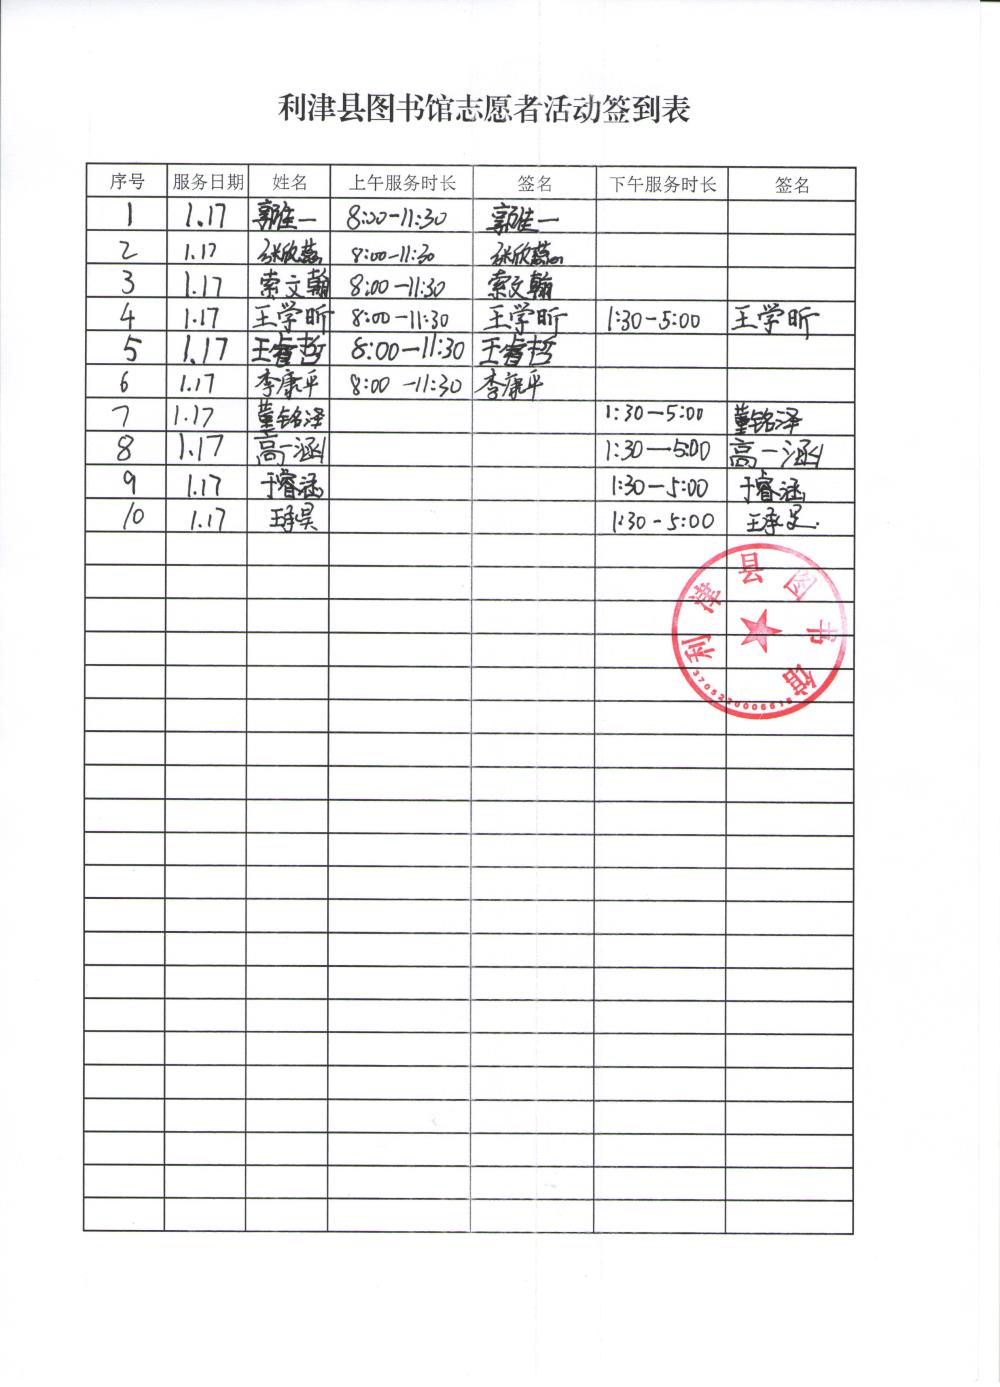 利津县图书馆志愿者活动签到表
序号 服务日期 姓名 上午服务时长 签名 下午服务时长 签名
1 1.17 郭佳一 8:00-11:30 郭佳一
2 1.17 张欣蕊 8:00-11:30 张欣蕊
3 1.17 索文翰 8:00-11:30 索文翰
4 1.17 王学昕 8:00-11:30 王学昕 1:30-5:00 王学昕
5 1.17 王睿哲 8:00-11:30 王睿哲
6 1.17 李康平 8:00-11:30 李康平
7 1.17 董铭泽 1:30-5:00 董铭泽
8 1.17 高一涵 1:30-5:00 高一涵
9 1.17 于睿涵 1:30-5:00 于睿涵
10 1.17 王承昊 1:30-5:00 王承昊
利津县图书馆